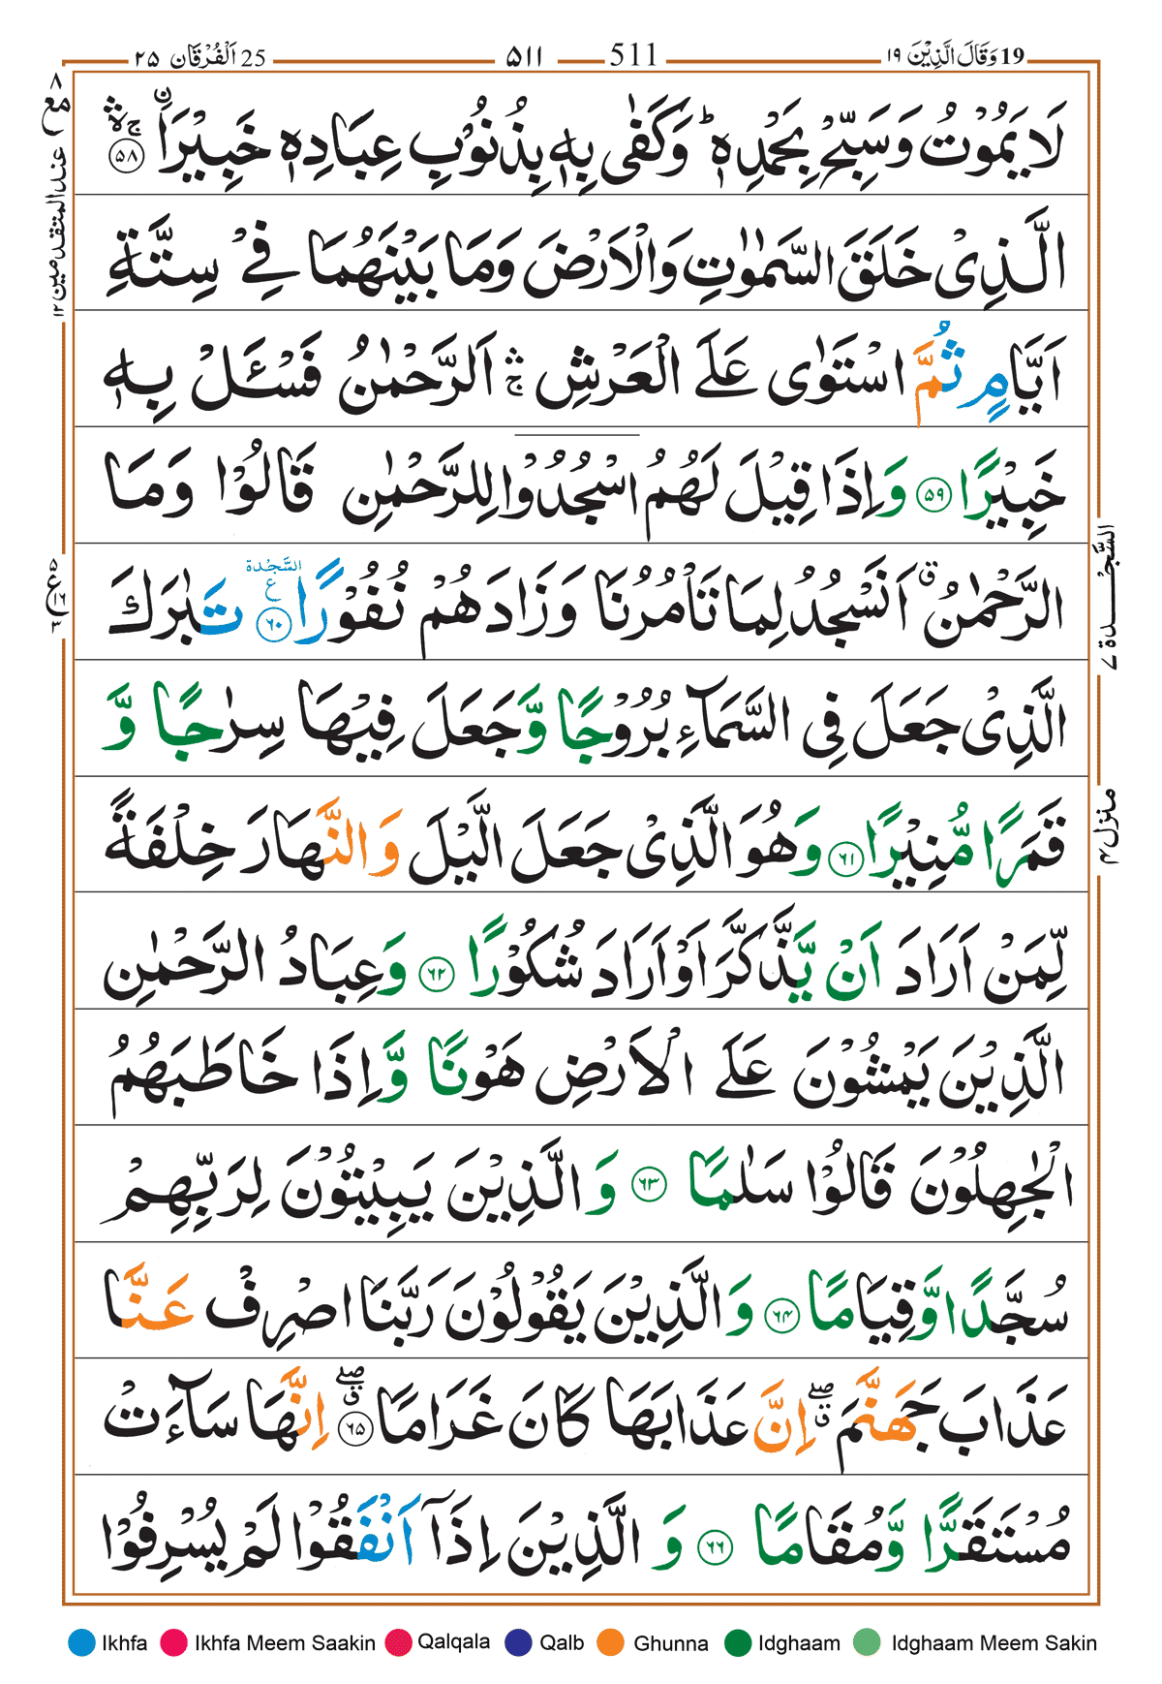 19 وَقَالَ الَّذِيْنَ ١٩ 511 ٥١١ 25 اَلْفُرْقَان ٢٥
لَا يَمُوْتُ وَسَبِّحْ بِحَمْدِهٖ ؕ وَكَفٰى بِهٖ بِذُنُوْبِ عِبَادِهٖ خَبِيْرَا ۛۚ ۙ ﴿٥٨﴾
الَّذِىْ خَلَقَ السَّمٰوٰتِ وَالْاَرْضَ وَمَا بَيْنَهُمَا فِىْ سِتَّةِ
اَيَّامٍ ثُمَّ اسْتَوٰى عَلَى الْعَرْشِ ۛۚ اَلرَّحْمٰنُ فَسْـَٔـلْ بِهٖ
خَبِيْرًا ﴿٥٩﴾ وَاِذَا قِيْلَ لَهُمُ اسْجُدُوْا لِلرَّحْمٰنِ قَالُوْا وَمَا
الرَّحْمٰنُ ق اَنَسْجُدُ لِمَا تَاْمُرُنَا وَزَادَهُمْ نُفُوْرًا السَّجْدَة ع ﴿٦٠﴾ تَبٰرَكَ
الَّذِىْ جَعَلَ فِى السَّمَآءِ بُرُوْجًا وَّجَعَلَ فِيْهَا سِرٰجًا وَّ
قَمَرًا مُّنِيْرًا ﴿٦١﴾ وَهُوَ الَّذِىْ جَعَلَ الَّيْلَ وَالنَّهَارَ خِلْفَةً
لِّمَنْ اَرَادَ اَنْ يَّذَّكَّرَ اَوْ اَرَادَ شُكُوْرًا ﴿٦٢﴾ وَعِبَادُ الرَّحْمٰنِ
الَّذِيْنَ يَمْشُوْنَ عَلَى الْاَرْضِ هَوْنًا وَّاِذَا خَاطَبَهُمُ
الْجٰهِلُوْنَ قَالُوْا سَلٰمًا ﴿٦٣﴾ وَالَّذِيْنَ يَبِيْتُوْنَ لِرَبِّهِمْ
سُجَّدًا وَّقِيَامًا ﴿٦٤﴾ وَالَّذِيْنَ يَقُوْلُوْنَ رَبَّنَا اصْرِفْ عَنَّا
عَذَابَ جَهَنَّمَ ۖق اِنَّ عَذَابَهَا كَانَ غَرَامًا ۖق ﴿٦٥﴾ اِنَّهَا سَآءَتْ
مُسْتَقَرًّا وَّمُقَامًا ﴿٦٦﴾ وَالَّذِيْنَ اِذَاۤ اَنْفَقُوْا لَمْ يُسْرِفُوْا
مع ٨ عند المتقدمين ١٢
السَّجْدة ٧
منزل ٤
Ikhfa Ikhfa Meem Saakin Qalqala Qalb Ghunna Idghaam Idghaam Meem Sakin